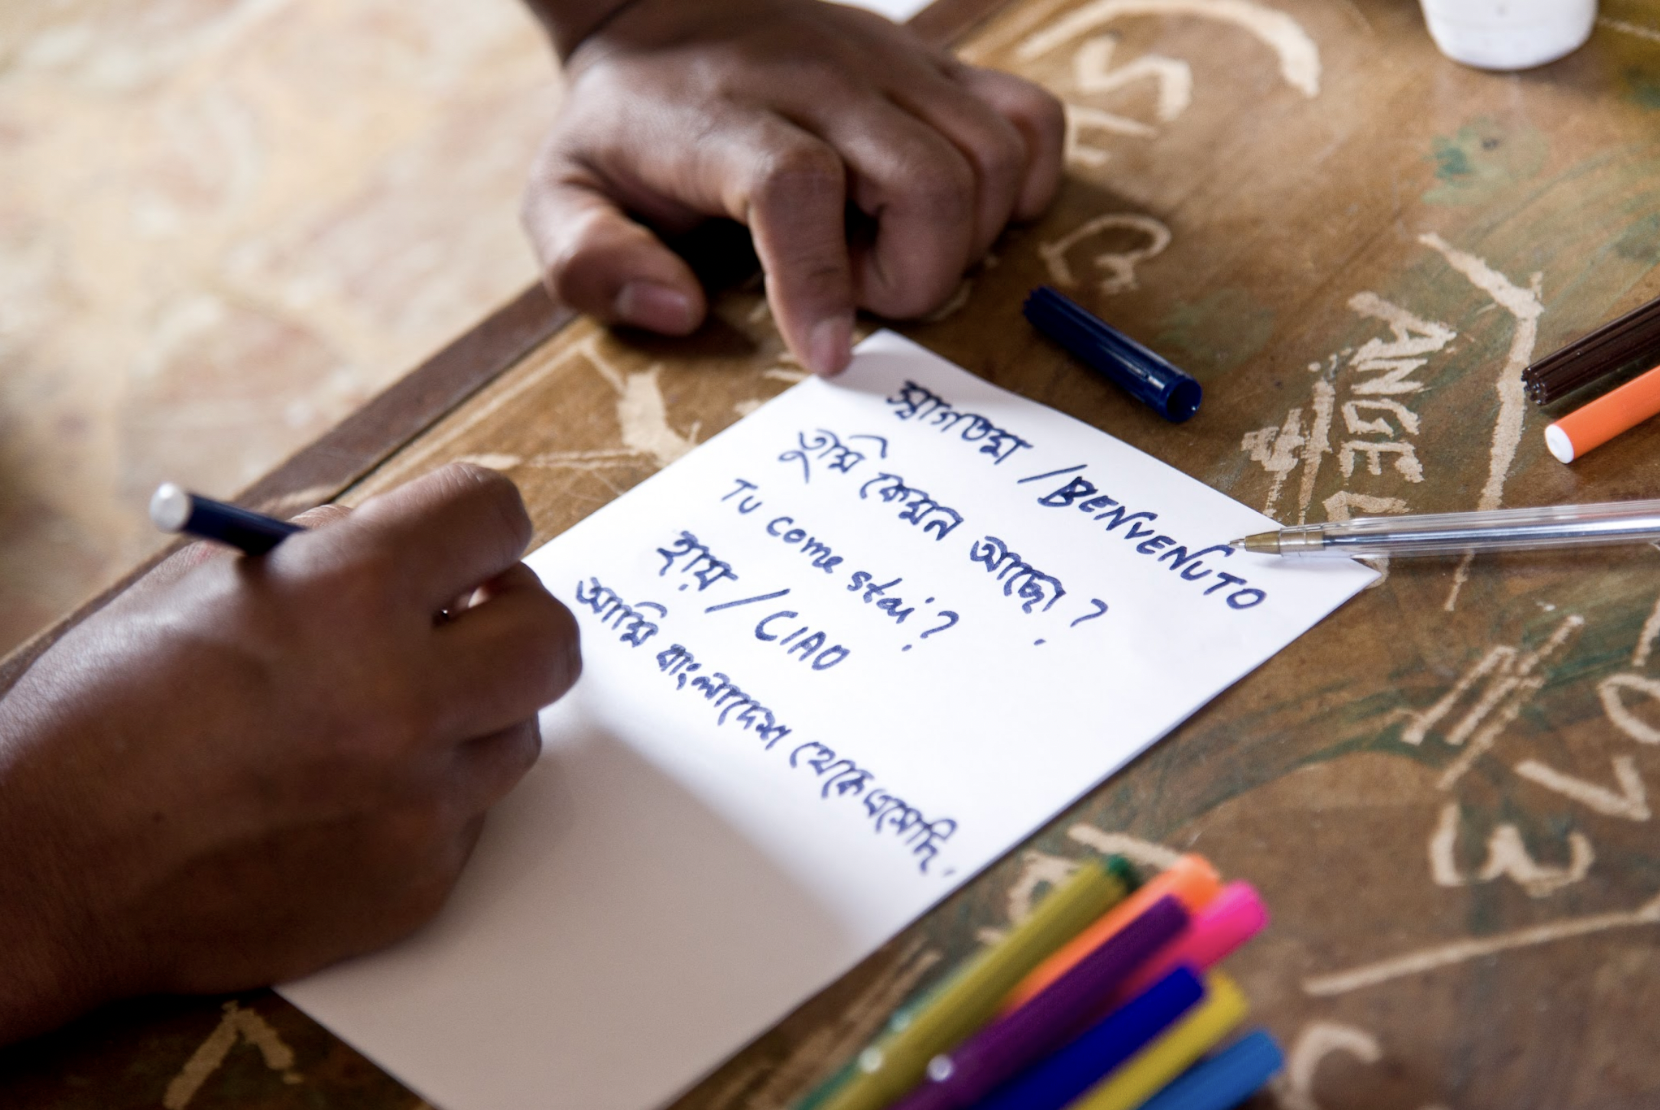 স্বাগতম / BENVENUTO
তুমি কেমন আছো ?
TU come stai ?
হায় / CIAO
আমি বাংলাদেশ থেকে এসেছি.
ANGE